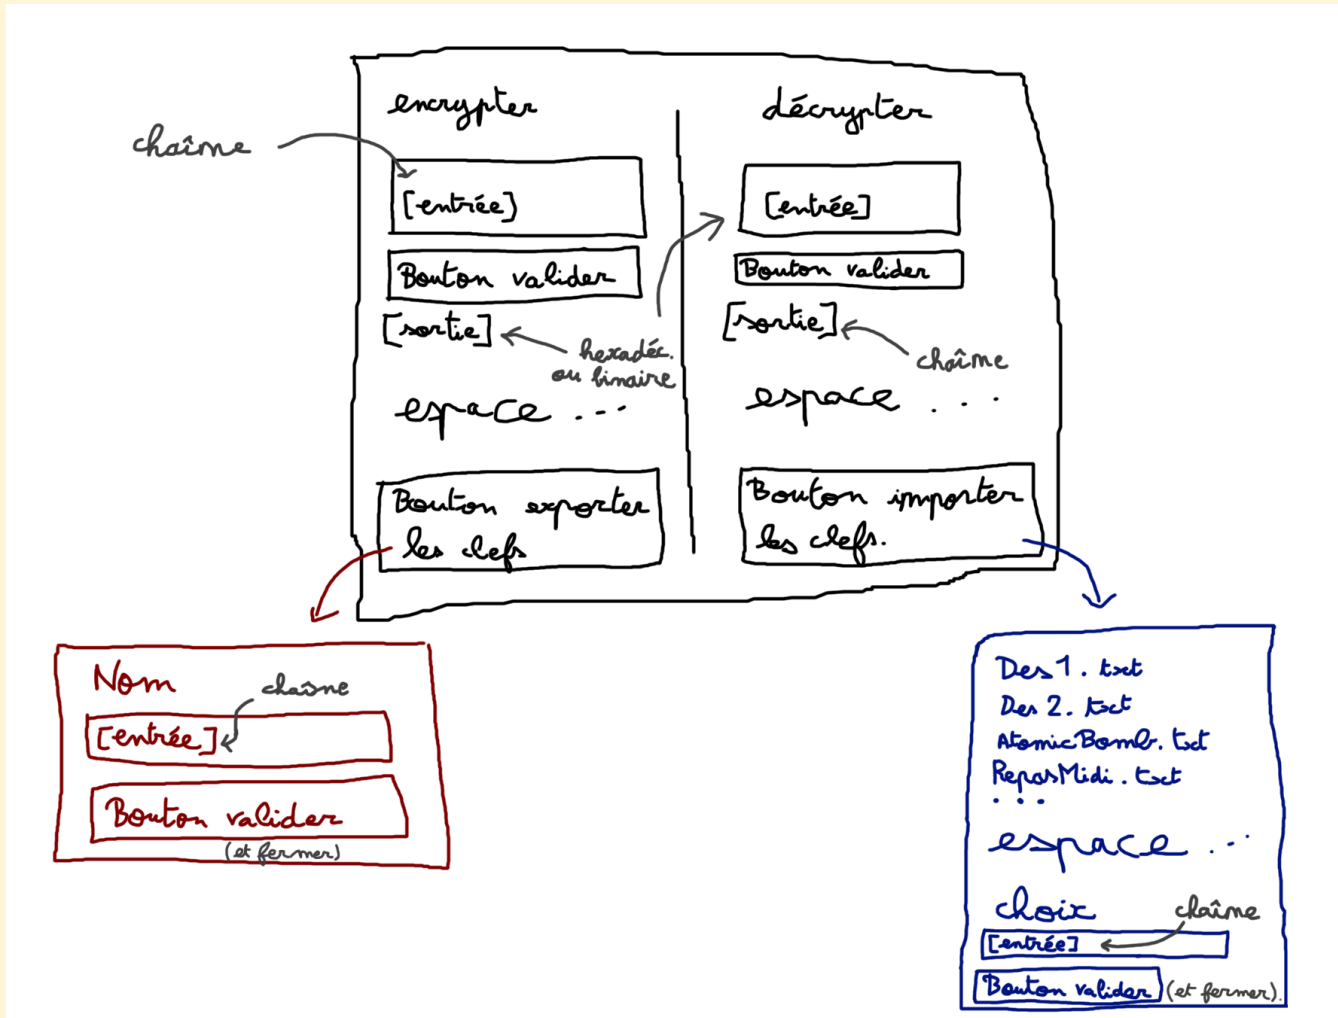 encrypter
chaîne
[entrée]
Bouton valider
[sortie]
hexadéc.
ou binaire
espace ...
Bouton exporter
les clefs
décrypter
[entrée]
Bouton valider
[sortie]
chaîne
espace ...
Bouton importer
les clefs.
Nom
chaîne
[entrée]
Bouton valider
(et fermer)
Des1.txt
Des2.txt
AtomicBomb.txt
RepasMidi.txt
...
espace ...
choix
chaîne
[entrée]
Bouton valider (et fermer).